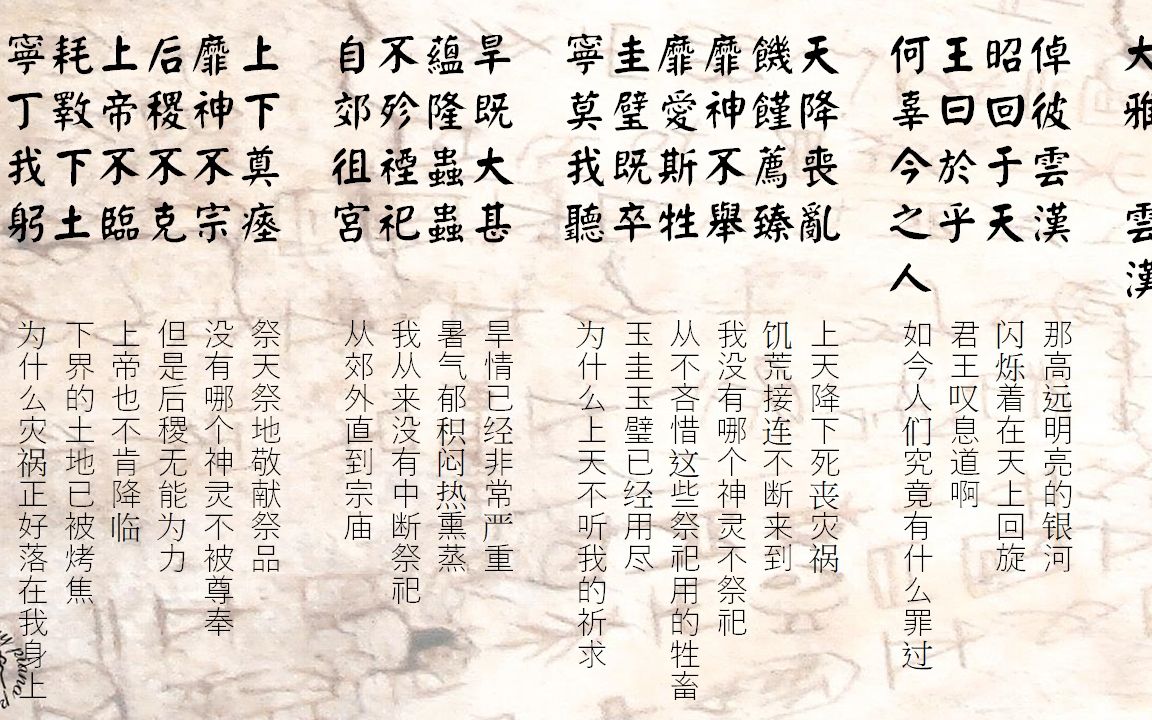 大雅 雲漢
倬彼雲漢
昭回于天
王曰於乎
何辜今之人
天降喪亂
饑饉薦臻
靡神不舉
靡愛斯牲
圭璧既卒
寧莫我聽
旱既大甚
蘊隆蟲蟲
不殄禋祀
自郊徂宮
上下奠瘞
靡神不宗
后稷不克
上帝不臨
耗斁下土
寧丁我躬
那高远明亮的银河
闪烁着在天上回旋
君王叹息道啊
如今人们究竟有什么罪过
上天降下死丧灾祸
饥荒接连不断来到
我没有哪个神灵不祭祀
从不吝惜这些祭祀用的牲畜
玉圭玉璧已经用尽
为什么上天不听我的祈求
旱情已经非常严重
暑气郁积闷热熏蒸
我从来没有中断祭祀
从郊外直到宗庙
祭天祭地敬献祭品
没有哪个神灵不被尊奉
但是后稷无能为力
上帝也不肯降临
下界的土地已被烤焦
为什么灾祸正好落在我身上